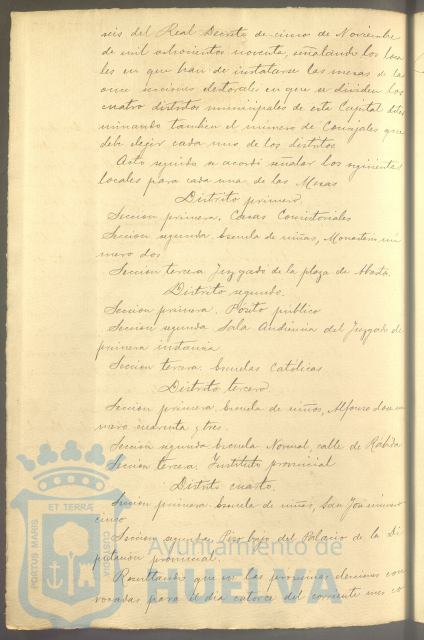 seis del Real Decreto de cinco de Noviembre
de mil ochocientos noventa, señalando los loca
les en que han de instalarse las mesas de las
once secciones electorales en que se dividen los
cuatro distritos municipales de esta Capital deter
minando tambien el numero de Concejales que
debe elejir cada uno de los distritos
Acto seguido se acordó señalar los siguientes
locales para cada una de las Mesas
Distrito primero.
Sección primera. Casas Consistoriales
Sección segunda. Escuela de niñas, Monasterio nú
mero dos
Sección tercera Juzgado de la plaza de Abasto.
Distrito segundo.
Sección primera. Pósito público
Sección segunda Sala Audiencia del Juzgado de
primera instancia
Sección tercera. Escuelas Católicas
Distrito tercero.
Sección primera. Escuela de niños, Alfonso doce nu
mero cuarenta y tres.
Sección segunda Escuela Normal, calle de Rábida
Sección tercera. Instituto provincial
Distrito cuarto.
Sección primera. Escuela de niñas, San José numero
cinco
Sección segunda. Piso bajo del Palacio de la Di
putación provincial.
Resultando que en las proximas elecciones con
vocadas para el dia catorce del corriente mes co
ET TERRÆ
PORTUS MARIS
CUSTODIA
Ayuntamiento de
HUELVA